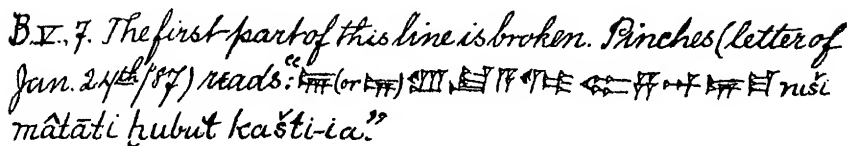 B.V., 7. The first part of this line is broken. Pinches (letter of
Jan. 24th/'87) reads: " (or ) ruši
mâtāti ḫubut ḳašti-ia."